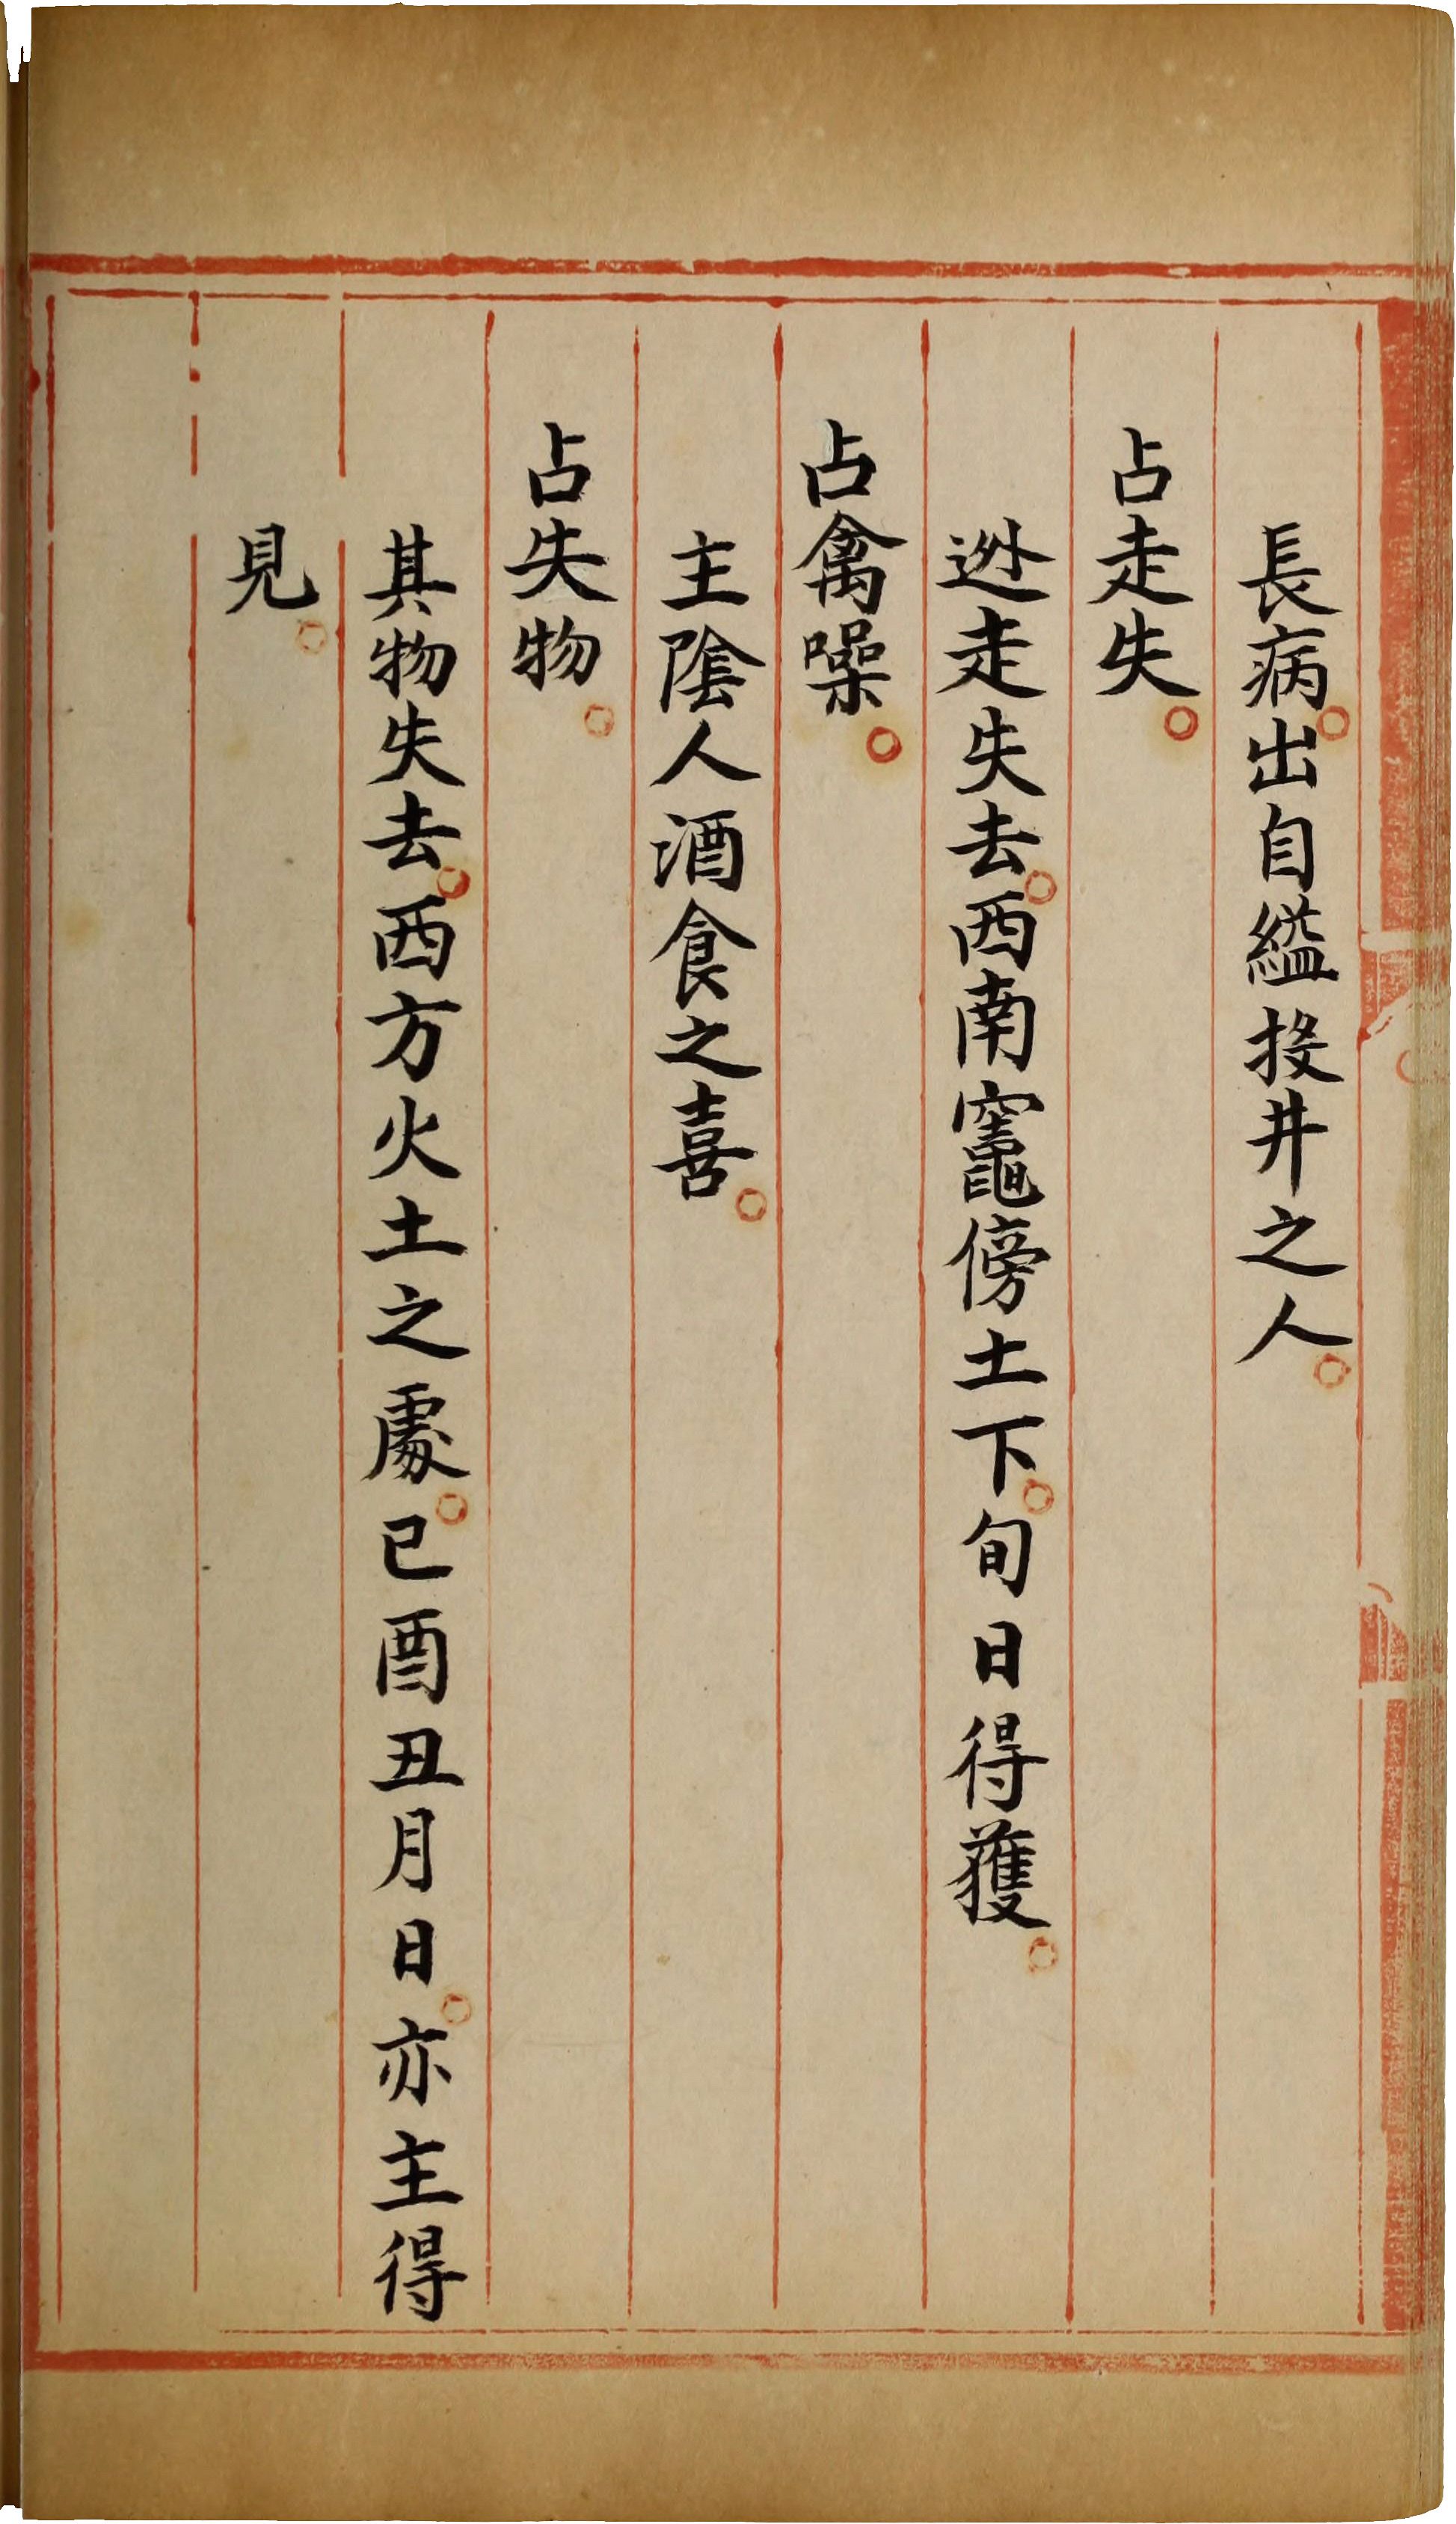 長病。出自縊投井之人。
占走失。
逃走失去。西南竈傍土下。旬日得獲。
占禽噪。
主陰人酒食之喜。
占失物。
其物失去。西方火土之處。巳酉丑月日。亦主得
見。